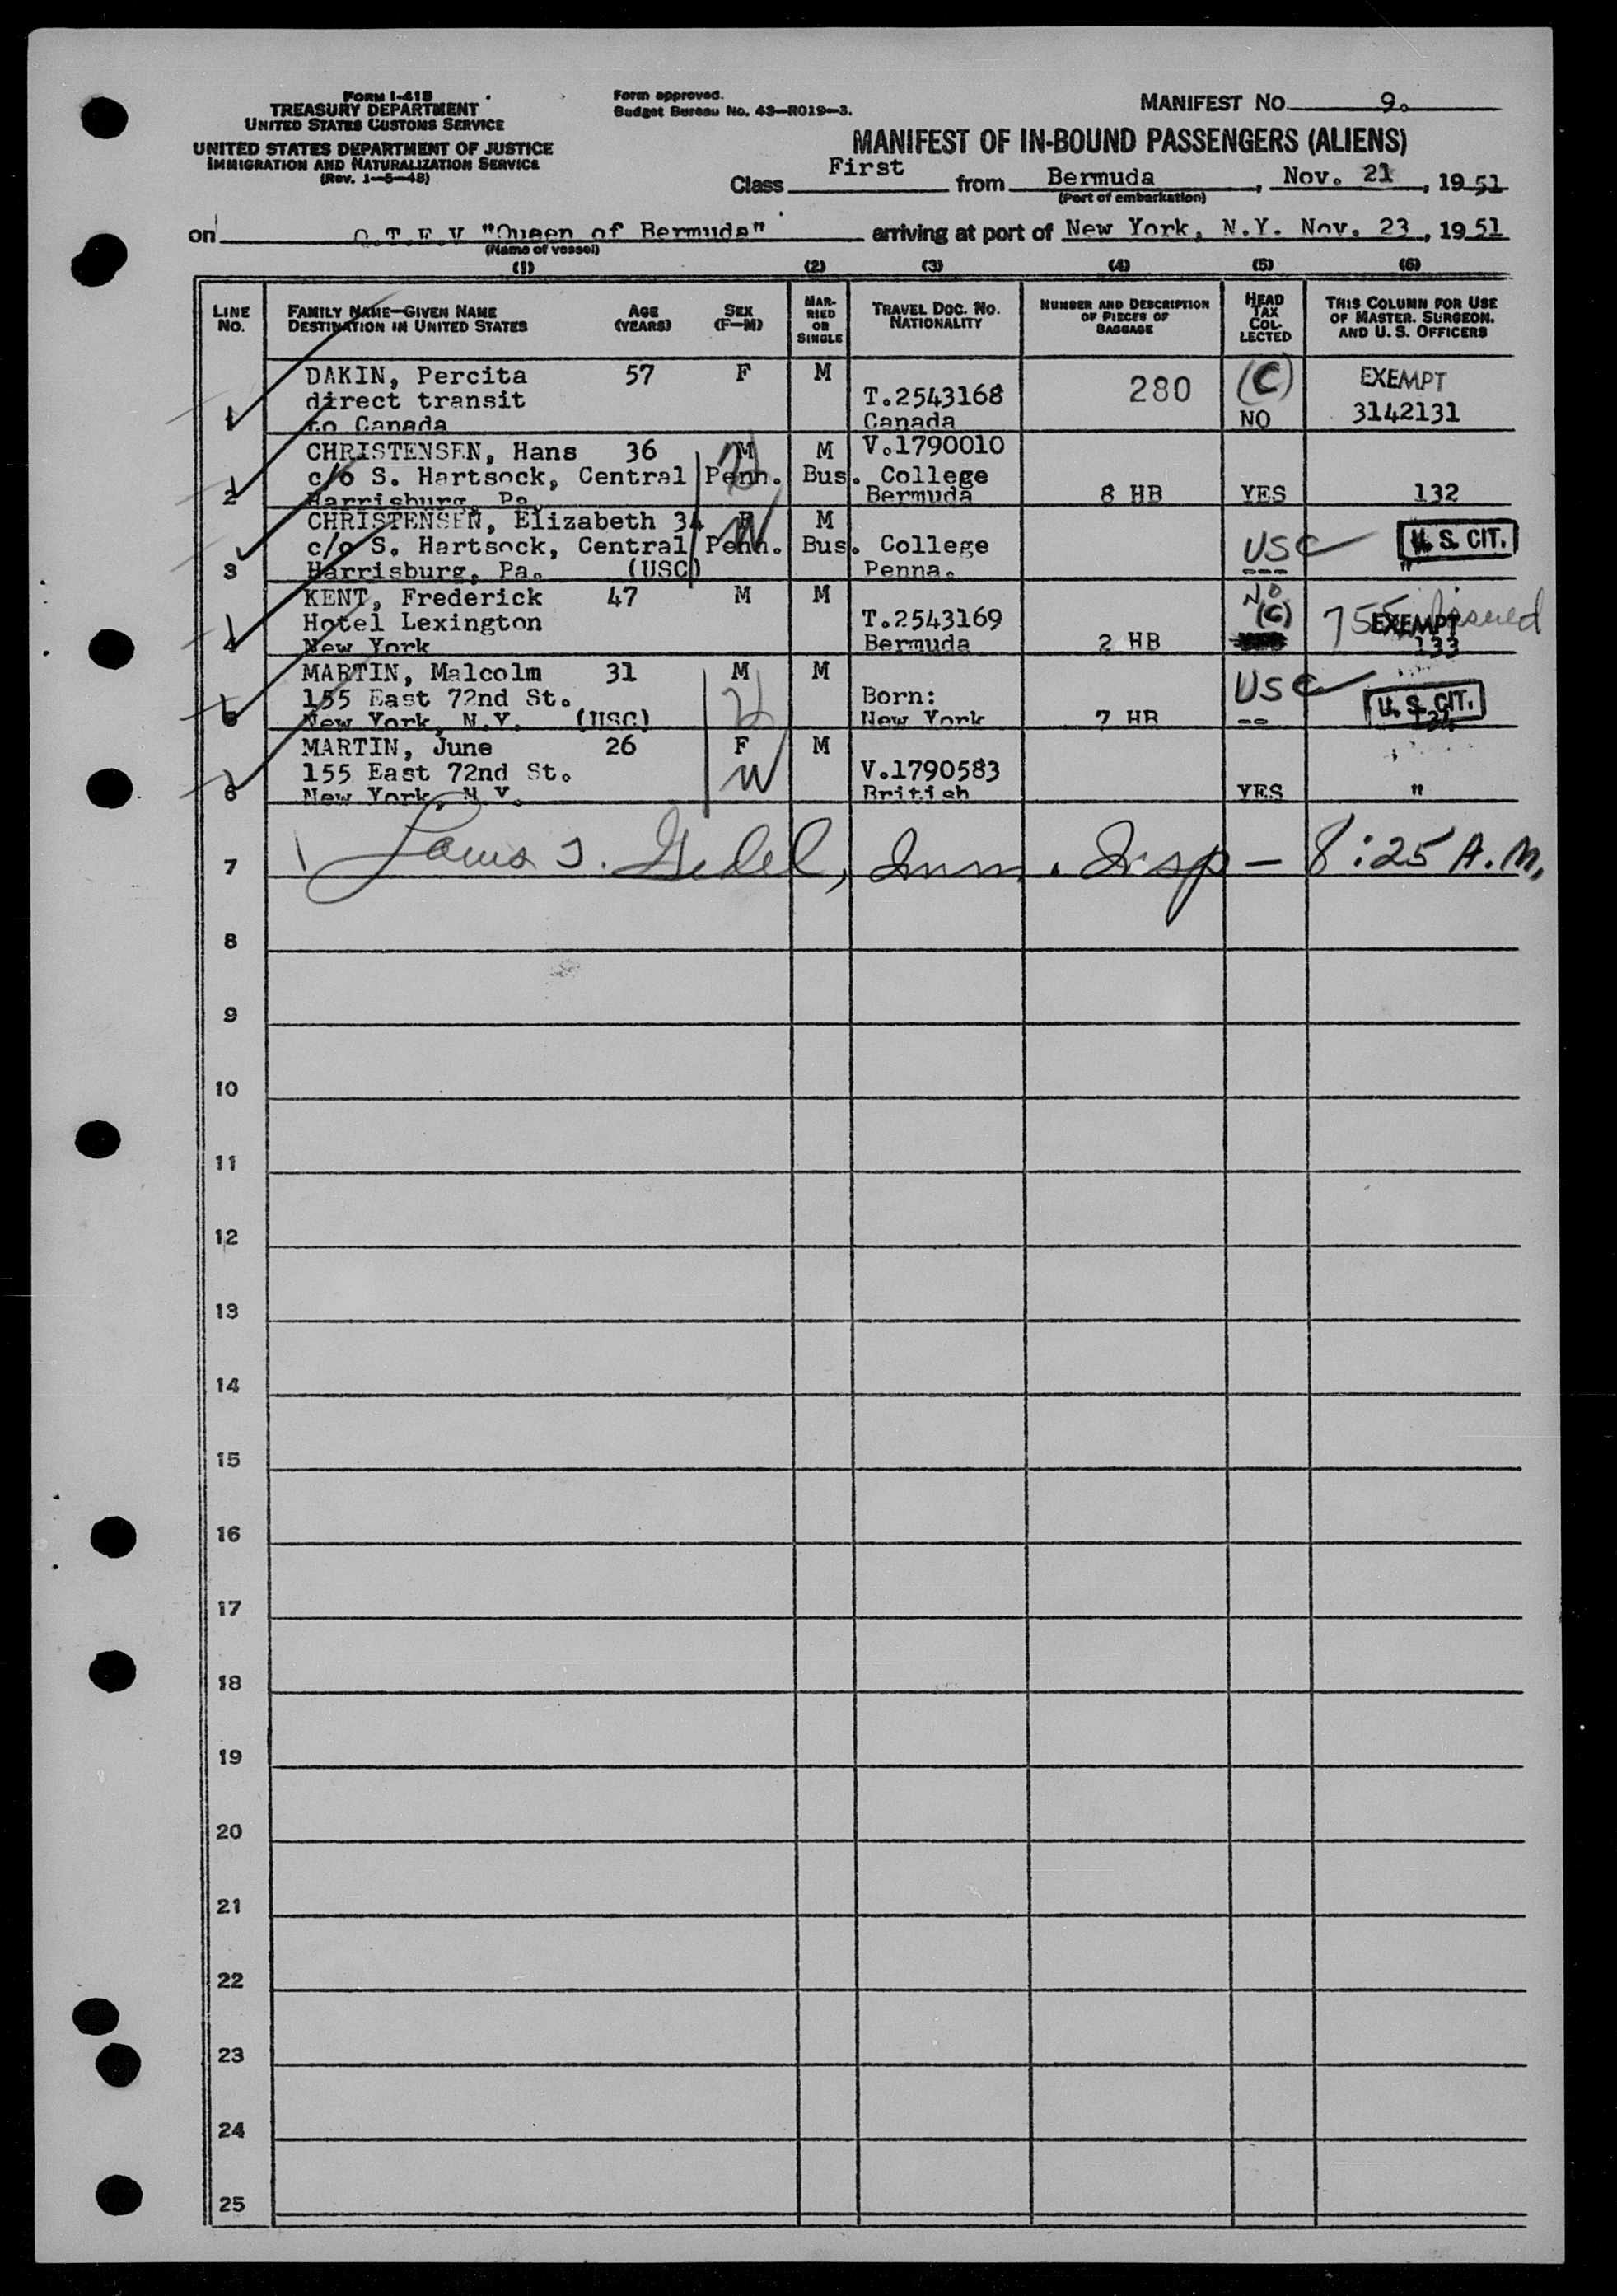 FORM I-418
TREASURY DEPARTMENT
UNITED STATES CUSTOMS SERVICE
UNITED STATES DEPARTMENT OF JUSTICE
IMMIGRATION AND NATURALIZATION SERVICE
(Rev. 1-5-48)
Form approved.
Budget Bureau No. 43-R019-3.
MANIFEST NO. 9.
MANIFEST OF IN-BOUND PASSENGERS (ALIENS)
Class First from Bermuda, Nov. 21, 1951
(Port of embarkation)
on Q.T.E.V "Queen of Bermuda" arriving at port of New York, N.Y. Nov. 23, 1951
(Name of vessel)
(1) (2) (3) (4) (5) (6)
LINE NO.
FAMILY NAME—GIVEN NAME
DESTINATION IN UNITED STATES
AGE (YEARS)
SEX (F—M)
MARRIED OR SINGLE
TRAVEL DOC. NO. NATIONALITY
NUMBER AND DESCRIPTION OF PIECES OF BAGGAGE
HEAD TAX COLLECTED
THIS COLUMN FOR USE OF MASTER, SURGEON, AND U. S. OFFICERS
1 DAKIN, Percita 57 F M 280 (C) EXEMPT
direct transit T.2543168
to Canada Canada NO 3142131
2 CHRISTENSEN, Hans 36 M M V.1790010
c/o S. Hartsock, Central Penn. Bus. College
Harrisburg, Pa. Bermuda 8 HB YES 132
3 CHRISTENSEN, Elizabeth 34 F M
c/o S. Hartsock, Central Penn. Bus. College USC U. S. CIT.
Harrisburg, Pa. (USC) Penna. --- "
4 KENT, Frederick 47 M M NO
Hotel Lexington T.2543169 (C) EXEMPT issued
New York Bermuda 2 HB 133
5 MARTIN, Malcolm 31 M M USC
155 East 72nd St. Born: U. S. CIT.
New York, N.Y. (USC) New York 7 HB --
6 MARTIN, June 26 F M
155 East 72nd St. W V.1790583
New York, N.Y. British YES "
7 Louis J. Gedel, Imm. Insp — 8:25 A.M.
8
9
10
11
12
13
14
15
16
17
18
19
20
21
22
23
24
25